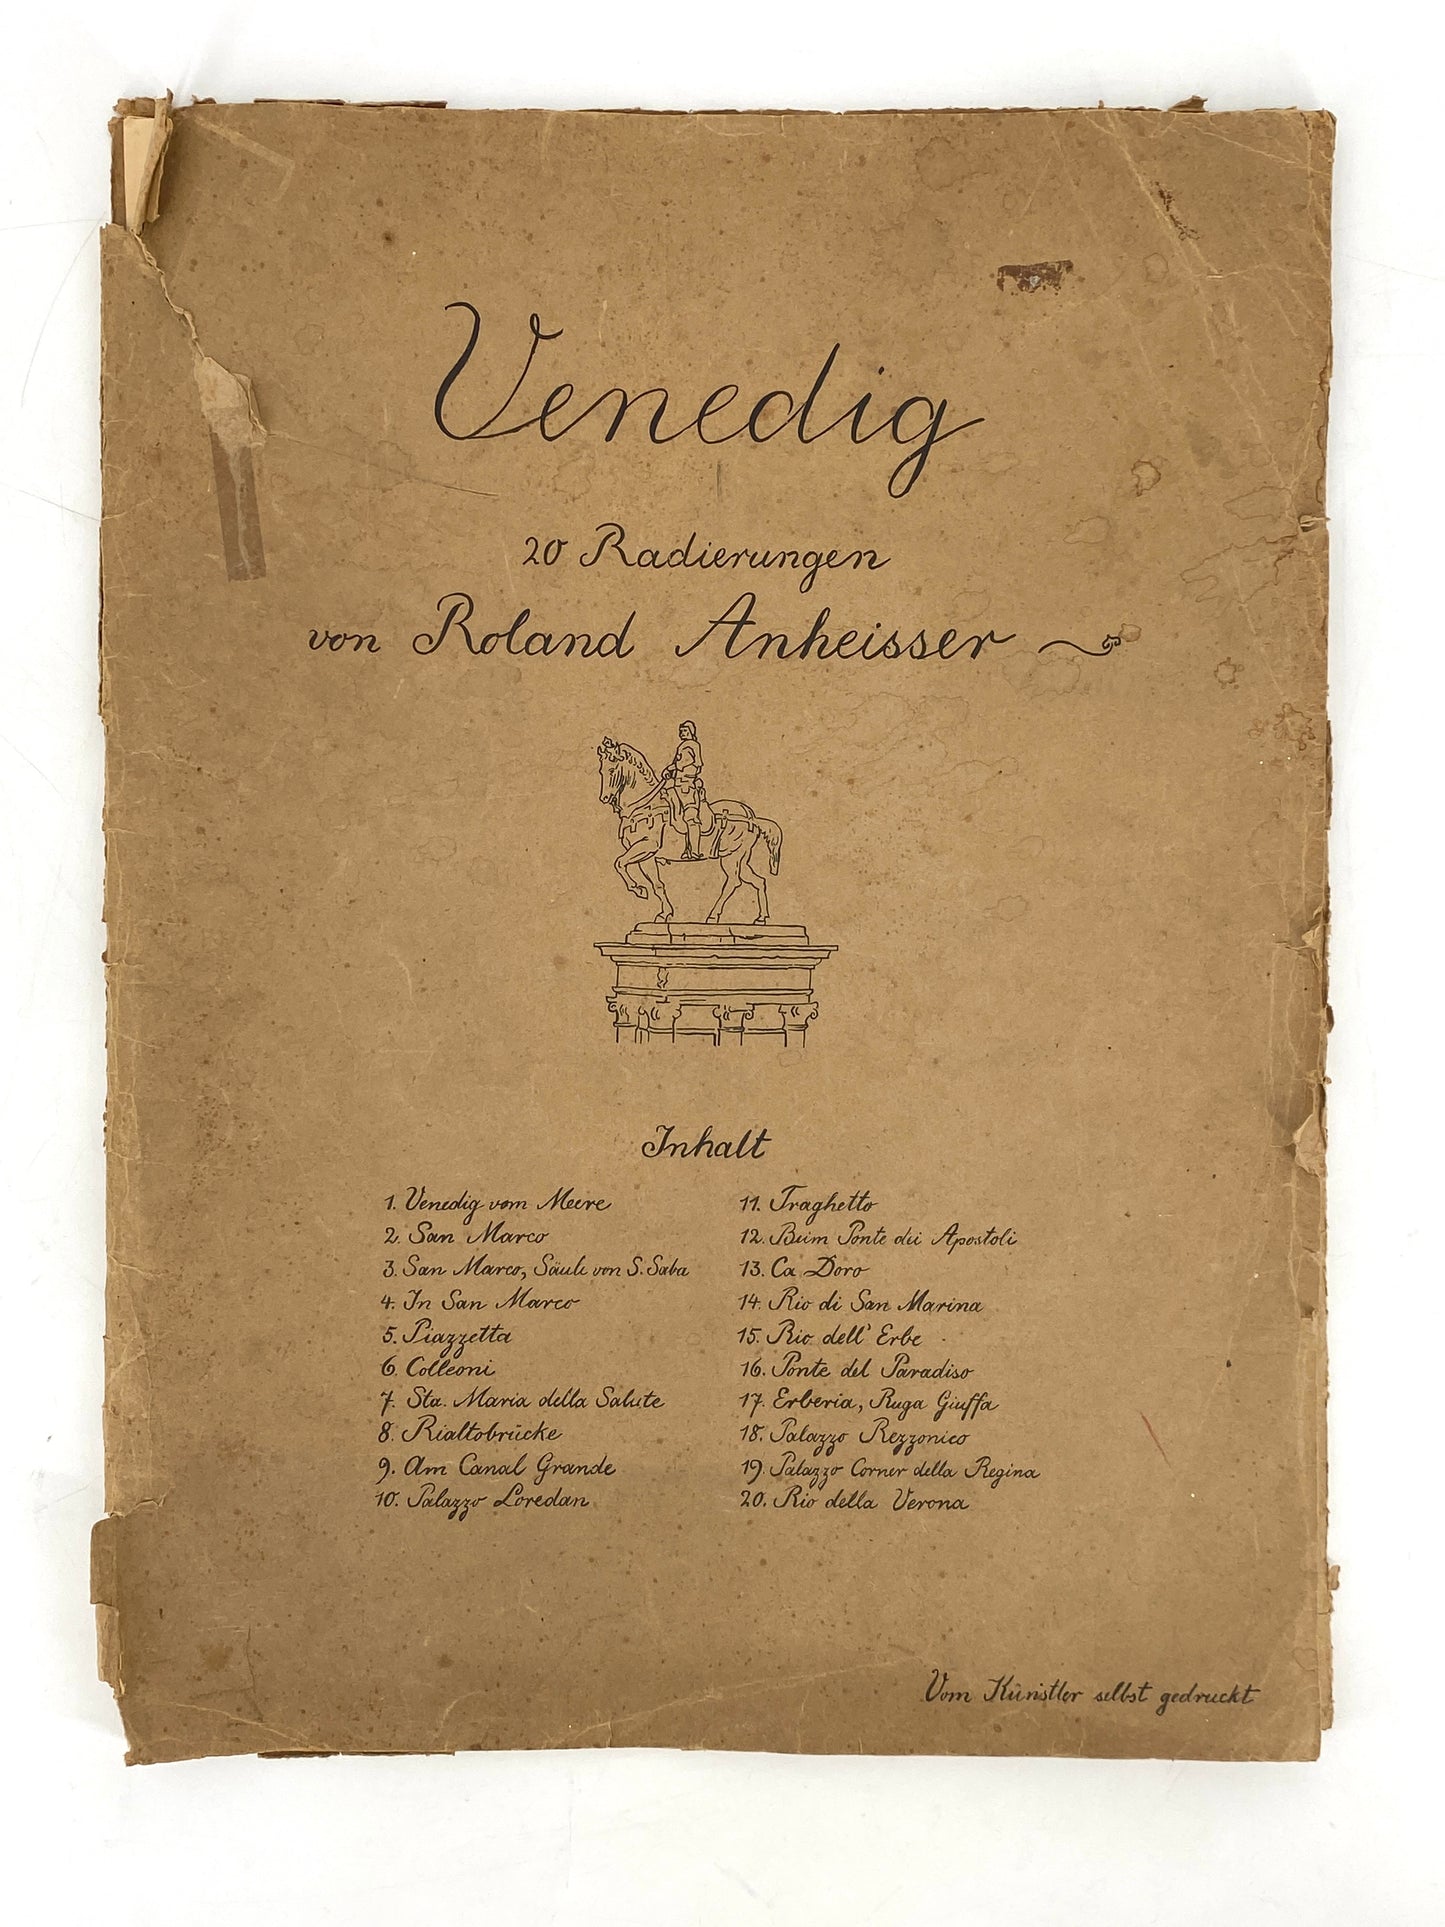 Venedig
20 Radierungen
von Roland Anheisser
Inhalt
1. Venedig vom Meere
2. San Marco
3. San Marco, Säule von S. Saba
4. In San Marco
5. Piazzetta
6. Colleoni
7. Sta. Maria della Salute
8. Rialtobrücke
9. Am Canal Grande
10. Palazzo Loredan
11. Traghetto
12. Beim Ponte dei Apostoli
13. Ca Doro
14. Rio di San Marina
15. Rio dell' Erbe
16. Ponte del Paradiso
17. Erberia, Ruga Giuffa
18. Palazzo Rezzonico
19. Palazzo Corner della Regina
20. Rio della Verona
Vom Künstler selbst gedruckt